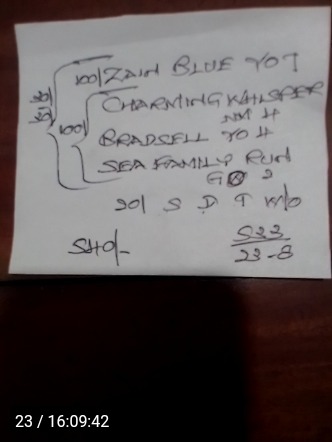 100/ ZAIN BLUE YO 7
CHARMING WHISPER
NM 4
100/
BRADSELL YO 4
SEA FAMILY RUN
GO 2
20/ S D T W/O
540/-
S33
23-8
23 / 16:09:42